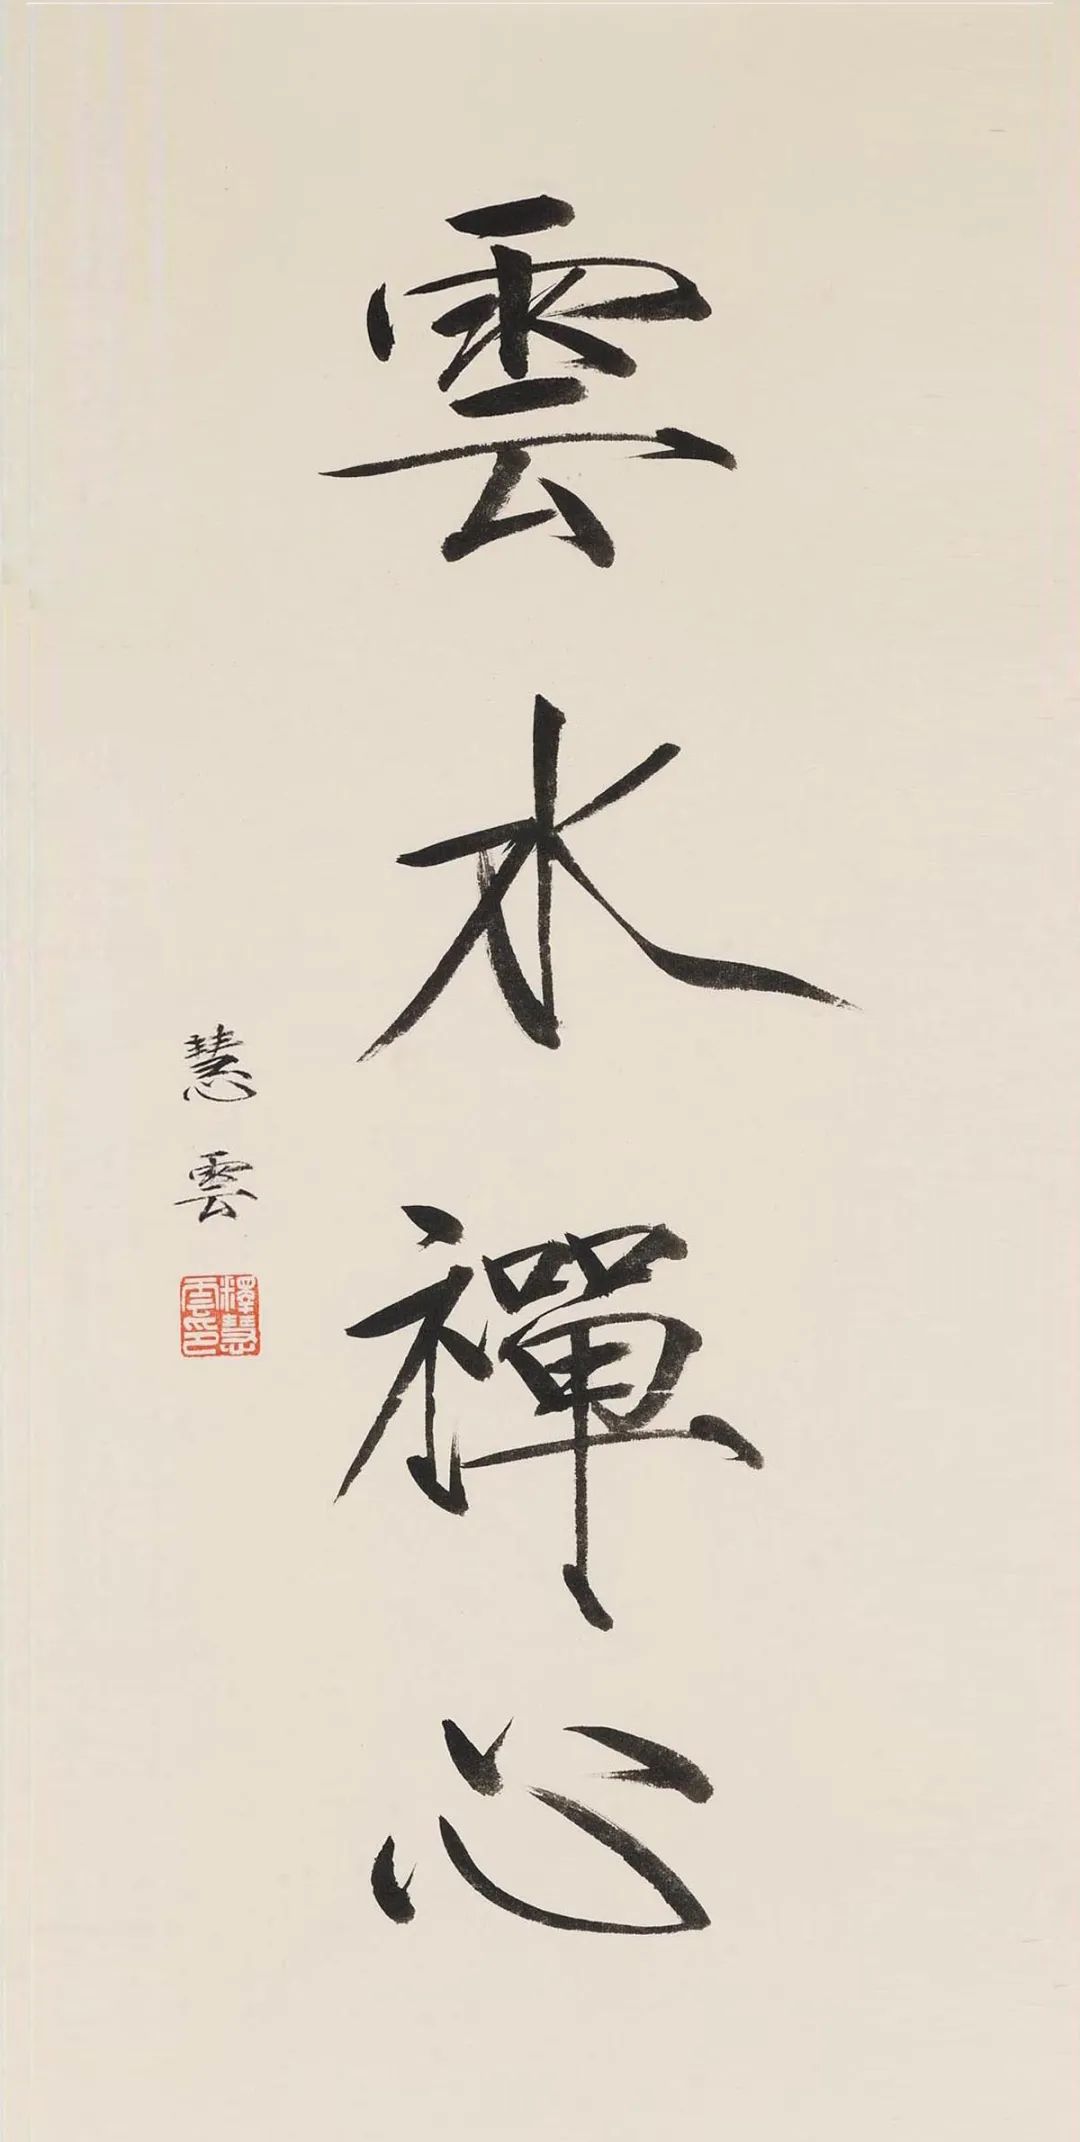 雲水禪心
慧雲
釋慧雲印